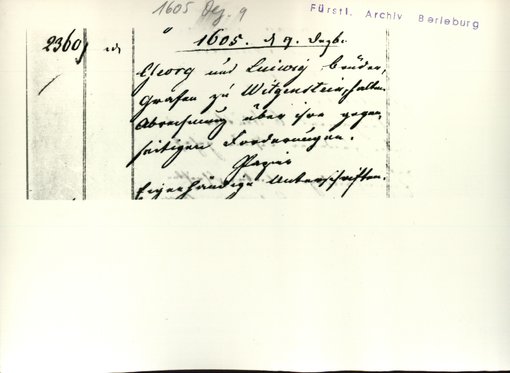 1605 Dez. 9
Fürstl. Archiv Berleburg
2360 1605. d 9. Dezbr.
Georg und Ludwig Brüder,
Grafen zu Witgenstein, halten
Abrechnung über ihre gegen-
seitigen Forderungen.
Papier
Eigenhändige Unterschriften.